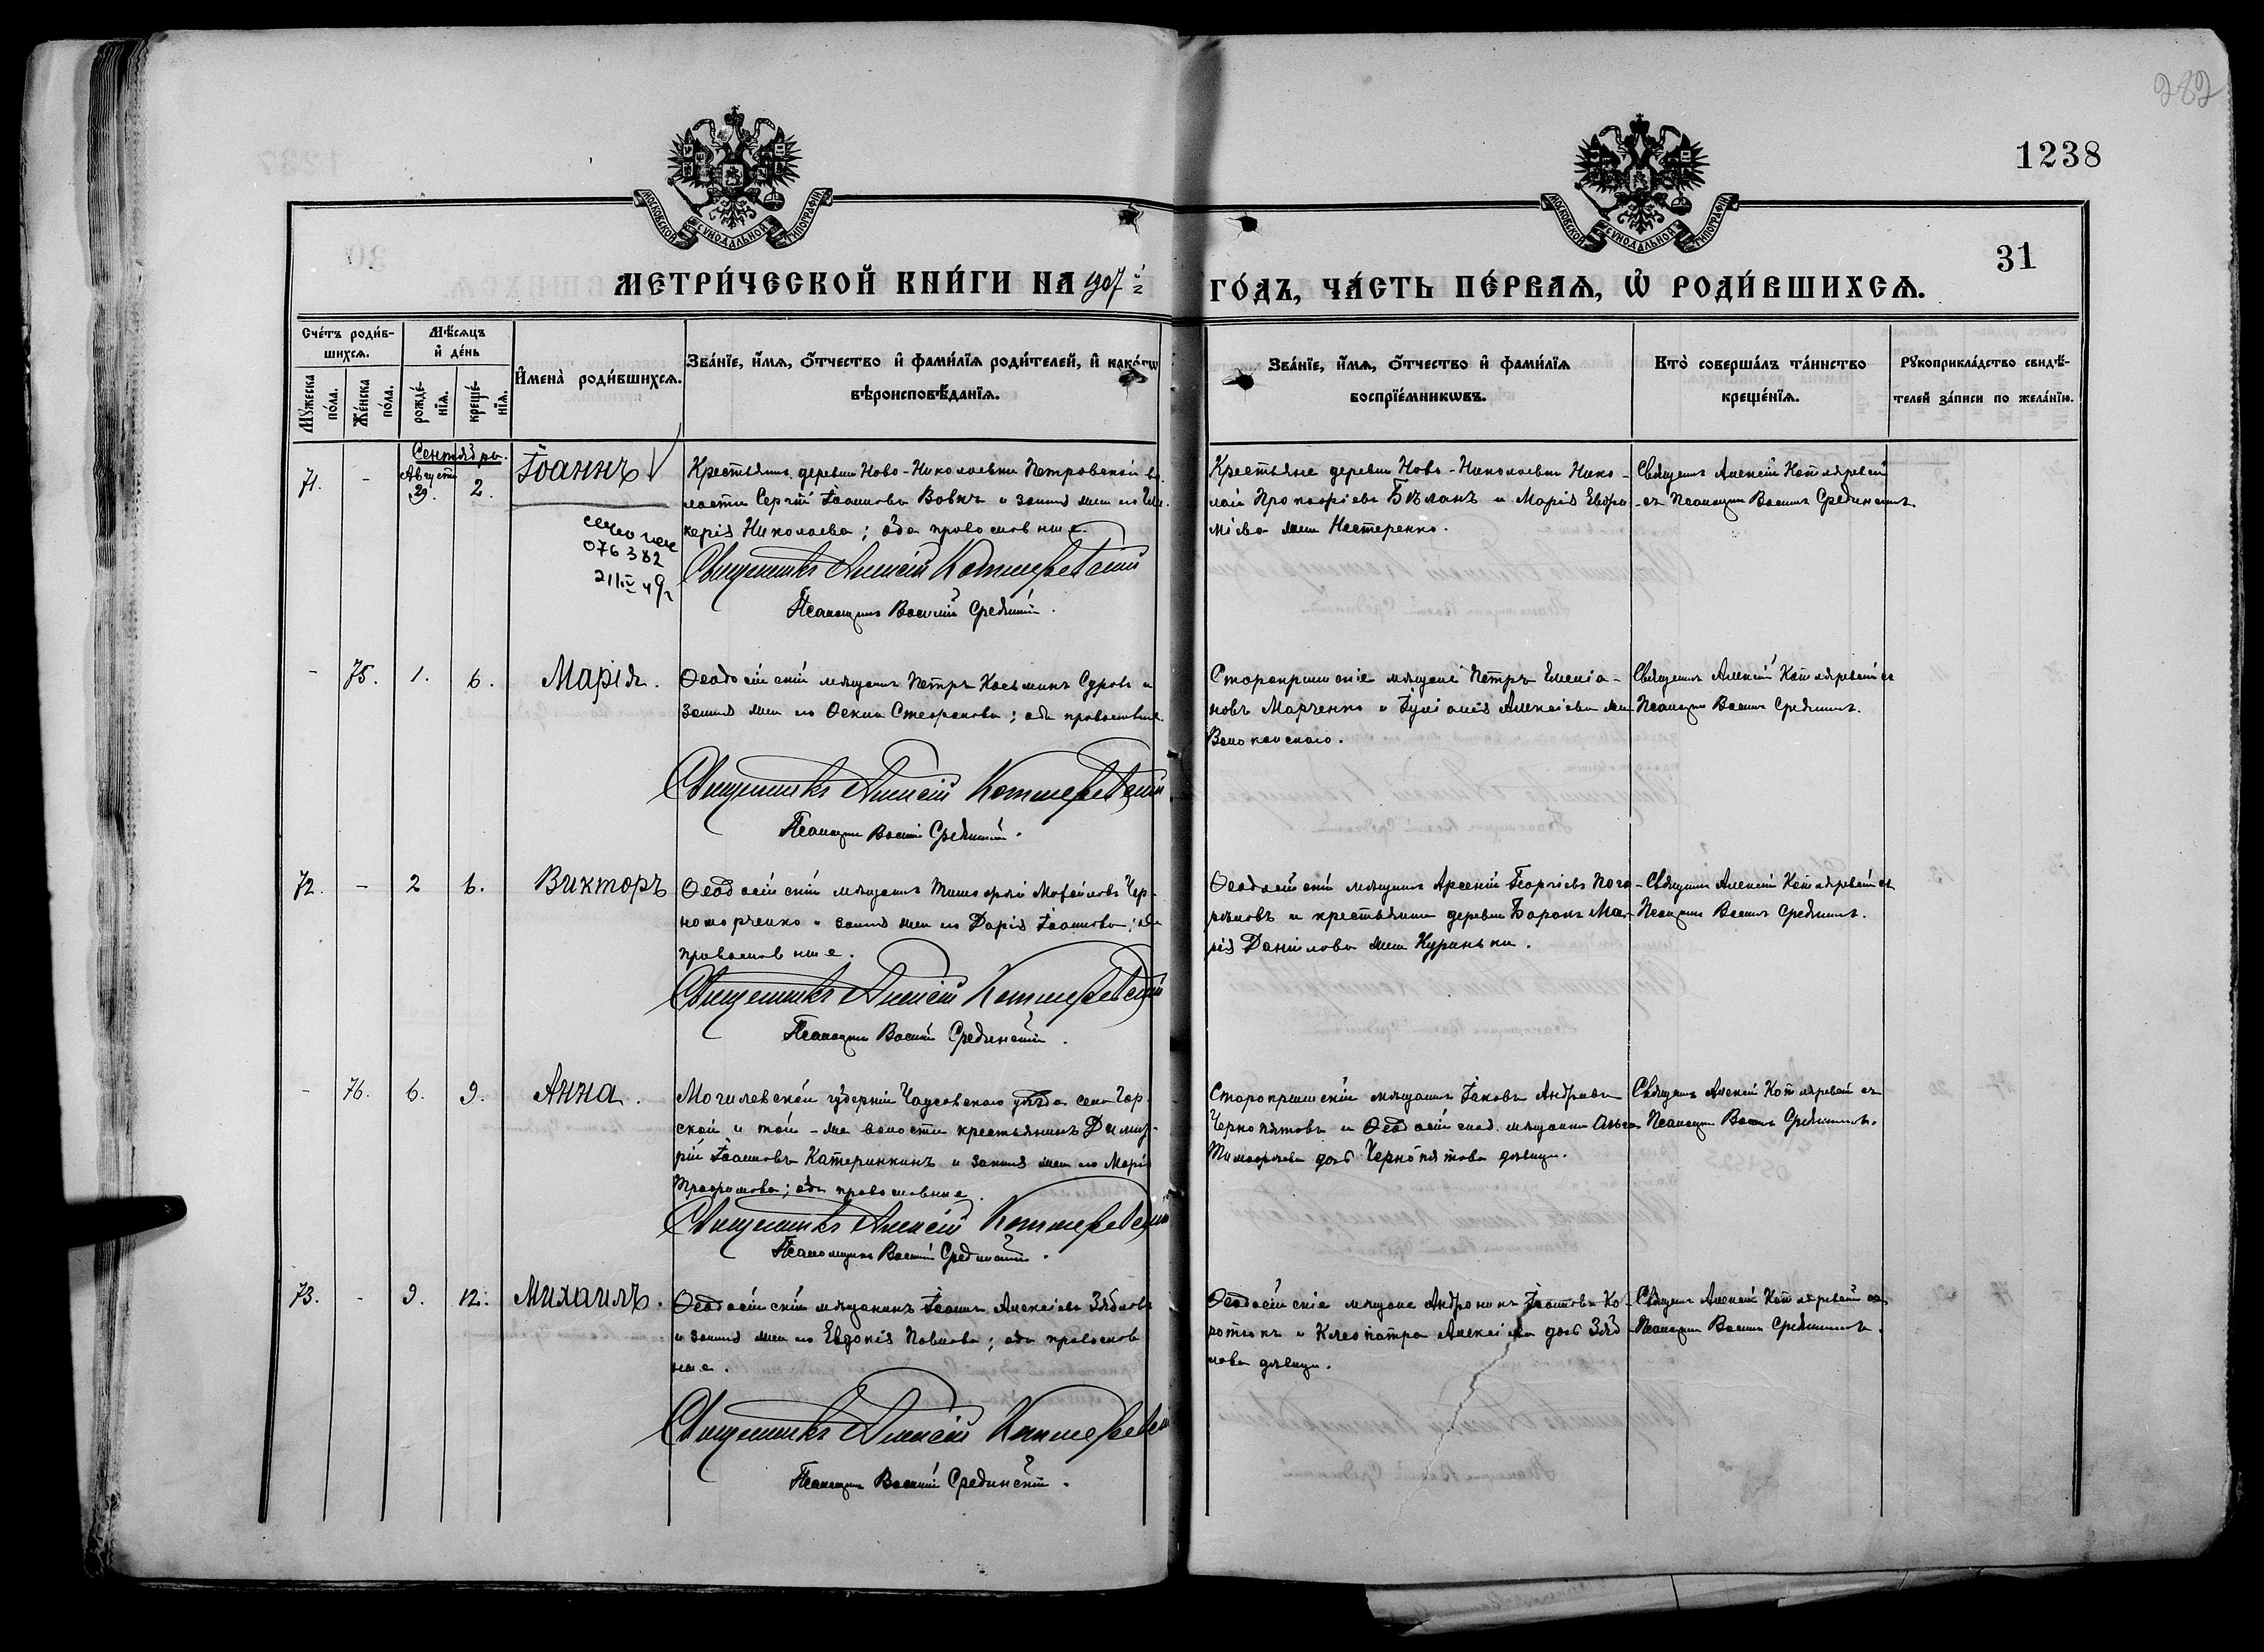 282
1238
31
МОСКОВСКОЙ СѴНОДАЛЬНОЙ ТИПОГРАФІИ
МОСКОВСКОЙ СѴНОДАЛЬНОЙ ТИПОГРАФІИ
МЕТРИ́ЧЕСКОЙ КНИ́ГИ НА 1907-й ГО́ДЪ, ЧА́СТЬ ПЕ́РВАѦ, Ѽ РОДИ́ВШИХСѦ.
Сче́тъ роди́в-
шихсѧ.
Мꙋ́жеска
по́ла.
Же́нска
по́ла.
Мѣ́сѧцъ
и҆ де́нь
рожде́-
нїѧ.
креще́-
нїѧ.
И҆мена̀ роди́вшихсѧ.
Зва́нїе, и҆́мѧ, ѻ҆́тчество и҆ фами́лїѧ роди́телей, и҆ како́гѡ
вѣроисповѣ́данїѧ.
Зва́нїе, и҆́мѧ, ѻ҆́тчество и҆ фами́лїѧ
воспрїе́мникѡвъ.
Кто̀ соверша́лъ та́инство
креще́нїѧ.
Рꙋкоприкла́дство свидѣ́-
телей за́писи по жела́нїю.
Сентябрь.
71.
-
Августа
29.
2.
Іоаннъ
076382
21/IV 49г
Крестьянинъ деревни Ново-Николаевки Петровской во-
лости Сергій Іоанновъ Вовкъ и законная жена его Гли-
керія Николаева; оба православные.
Священникъ Алексій Котляревскій
Псаломщикъ Василій Срединскій.
Крестьяне деревни Ново-Николаевки Нико-
лай Прокофіевъ Бѣланъ и Марія Евфи-
міева жена Нестеренко.
Священникъ Алексій Котляревскій
съ Псаломщикомъ Василіемъ Срединскимъ.
-
75.
1.
6.
Марія.
Ѳеодосійскій мѣщанинъ Петръ Косьминъ Суровъ и
законная жена его Ѳекла Стефанова; оба православные.
Священникъ Алексій Котляревскій
Псаломщикъ Василій Срединскій.
Старокрымскіе мѣщане Петръ Емеліа-
новъ Марченко и Іуліанія Алексіева жена
Волоканскаго.
Священникъ Алексій Котляревскій съ
Псаломщикомъ Василіемъ Срединскимъ.
72.
-
2
6.
Викторъ
Ѳеодосійскій мѣщанинъ Тимофей Матѳіевъ Чер-
номорченко и законная жена его Дарія Іоаннова; оба
православные.
Священникъ Алексій Котляревскій
Псаломщикъ Василій Срединскій.
Ѳеодосійскій мѣщанинъ Арсеній Георгіевъ Пого-
рѣловъ и крестьянина деревни Баракъ Ма-
рія Даніилова жена Куринька.
Священникъ Алексій Котляревскій съ
Псаломщикомъ Василіемъ Срединскимъ.
-
76.
6.
9.
Анна.
Могилевской губерніи Чаусовскаго уѣзда села Гор-
ской и той-же волости крестьянинъ Димит-
рій Іоанновъ Катеринкинъ и законная жена его Марія
Трофимова; оба православные.
Священникъ Алексій Котляревскій
Псаломщикъ Василій Срединскій.
Старокрымскій мѣщанинъ Іаковъ Андреевъ
Чернопятовъ и Ѳеодосійская мѣщанка Ольга
Тимофеева дочь Чернопятова дѣвица.
Священникъ Алексій Котляревскій съ
Псаломщикомъ Василіемъ Срединскимъ.
73.
-
9.
12.
Михаилъ.
Ѳеодосійскій мѣщанинъ Іоаннъ Алексіевъ Зябловъ
и законная жена его Евдокія Павлова; оба православ
ные.
Священникъ Алексій Котляревскій
Псаломщикъ Василій Срединскій.
Ѳеодосійскіе мѣщане Андроникъ Іоанновъ Ко-
роткъ и Клеопатра Алексіева дочь Зяб
лова дѣвица.
Священникъ Алексій Котляревскій съ
Псаломщикомъ Василіемъ Срединскимъ.